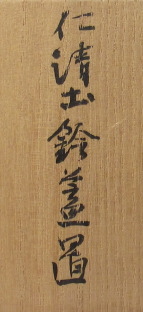 仁清土鈴蓋置